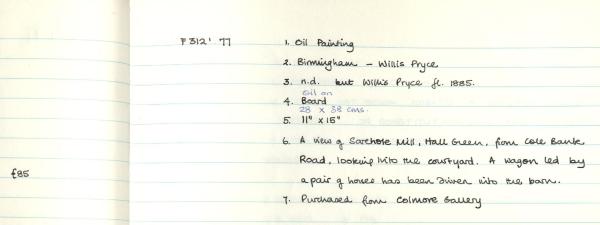 F312' 77
1. Oil Painting
2. Birmingham - Willis Pryce
3. n.d. but Willis Pryce fl. 1885.
oil on
4. Board
28 x 38 cms.
5. 11" x 15"
6. A view of Sarehole Mill, Hall Green, from Cole Bank
Road, looking into the courtyard. A wagon led by
a pair of horses has been driven into the barn.
£85
7. Purchased from Colmore Gallery